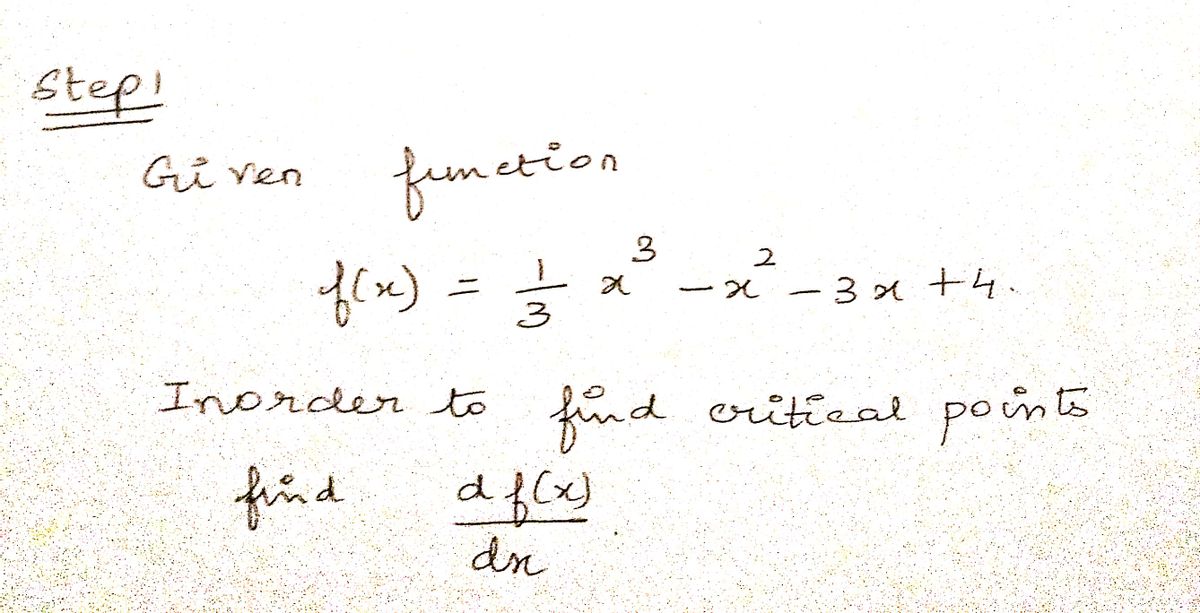 Step 1
Given function
f(x) = 1/3 x³ - x² - 3x + 4.
Inorder to find critical points
find df(x)/dx